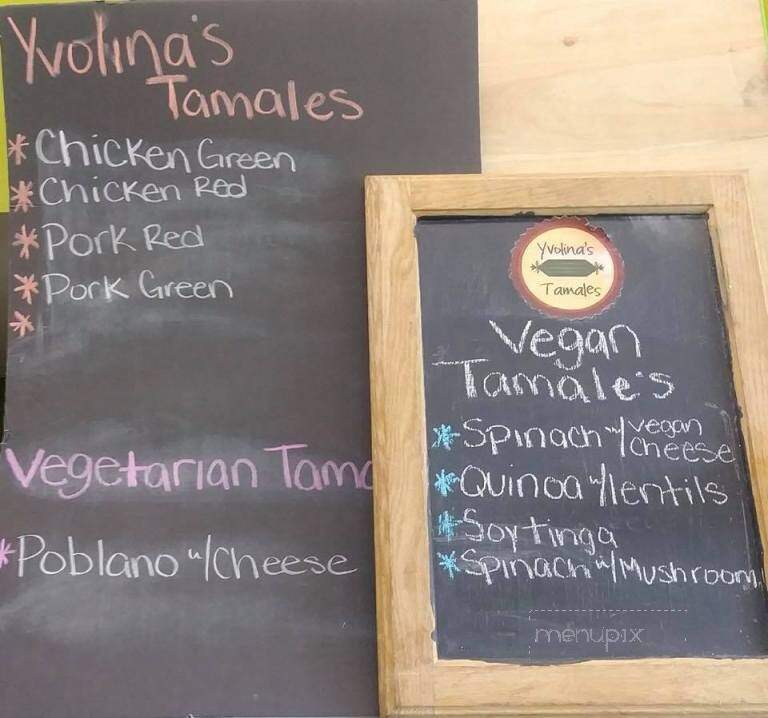 Yvolina's
Tamales
* Chicken Green
* Chicken Red
* Pork Red
* Pork Green
*
Vegetarian Tama
* Poblano w/Cheese
Yvolina's
Tamales
Vegan
Tamale's
* Spinach w/Vegan
Cheese
* Quinoa w/lentils
* Soy Tinga
* Spinach w/Mushroom
menupix